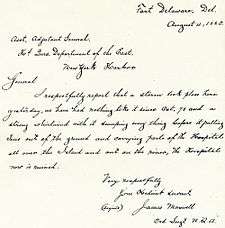 Fort Delaware, Del.
August 21, 1888.
Asst. Adjutant General.
Hd. Qrs. Department of the East.
New York Harbor
General
I respectfully report that a storm took place here
yesterday, we have had nothing like it since Oct. 78 and a
strong whirlwind with it sweeping any thing before it pulling
trees out of the ground and carrying parts of the Hospital
all over the Island and out on the river, the Hospital
now is ruined.
Very respectfully
Your Obedient Servant
(Signed) James Maxwell
Ord Sergt U.S.A.